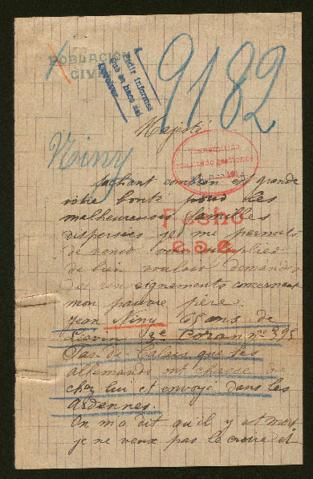 POBLACION
CIVIL
Pedir informes
9182
Majesté
Niny
Sachant combien est grande
votre bonté pour les
malheureuses familles
dispersées je me permets
de venir vous
de bien vouloir demander
des renseignements concernant
mon pauvre père.
Jean Niny 68 ans de
n° 395
Pas de Calais que les
allemands ont chassé de
chez lui et envoyé dans les
Ardennes.
On m'a dit qu'il y est mort
je ne veux pas le croire et
Fecho